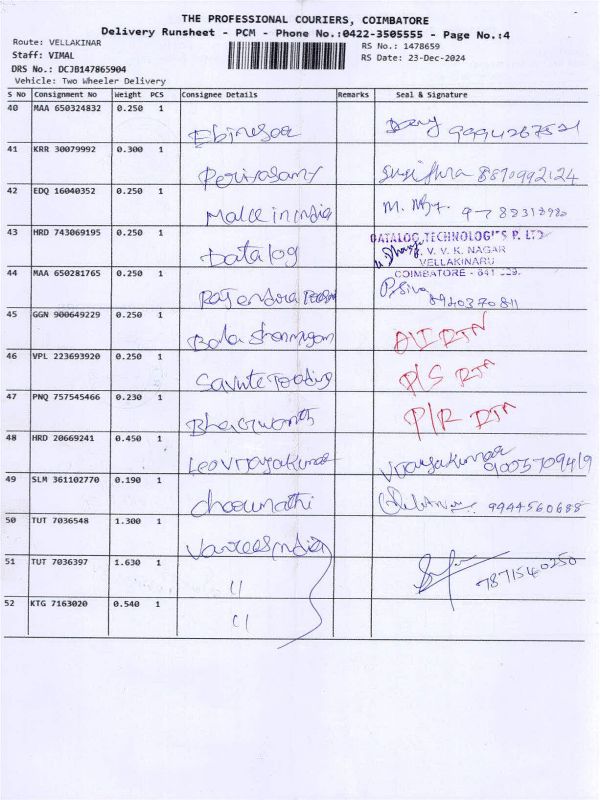 THE PROFESSIONAL COURIERS, COIMBATORE
Delivery Runsheet - PCM - Phone No.:0422-3505555 - Page No.:4
Route: VELLAKINAR
RS No.: 1478659
Staff: VIMAL
RS Date: 23-Dec-2024
DRS No.: DCJB147865904
Vehicle: Two Wheeler Delivery
S No Consignment No Weight PCS Consignee Details Remarks Seal & Signature
40 MAA 650324832 0.250 1
41 KRR 30079992 0.300 1 Periyasamy Sujithra 8870992124
42 EDQ 16040352 0.250 1 Make in india
43 HRD 743069195 0.250 1 Datalog DATALOG TECHNOLOGIES P. LTD
V. V. K. NAGAR
VELLAKINARU
COIMBATORE - 641 029.
44 MAA 650281765 0.250 1 P/Siva
45 GGN 900649229 0.250 1 Bala Shanmugam
46 VPL 223693920 0.250 1 P/S RTN
47 PNQ 757545466 0.230 1 P/R RTN
48 HRD 20669241 0.450 1 Leo Vijayakumar Vijayakumar 9005709419
49 SLM 361102770 0.190 1 9944560688
50 TUT 7036548 1.300 1
51 TUT 7036397 1.630 1 " 7871540250
52 KTG 7163020 0.540 1 "